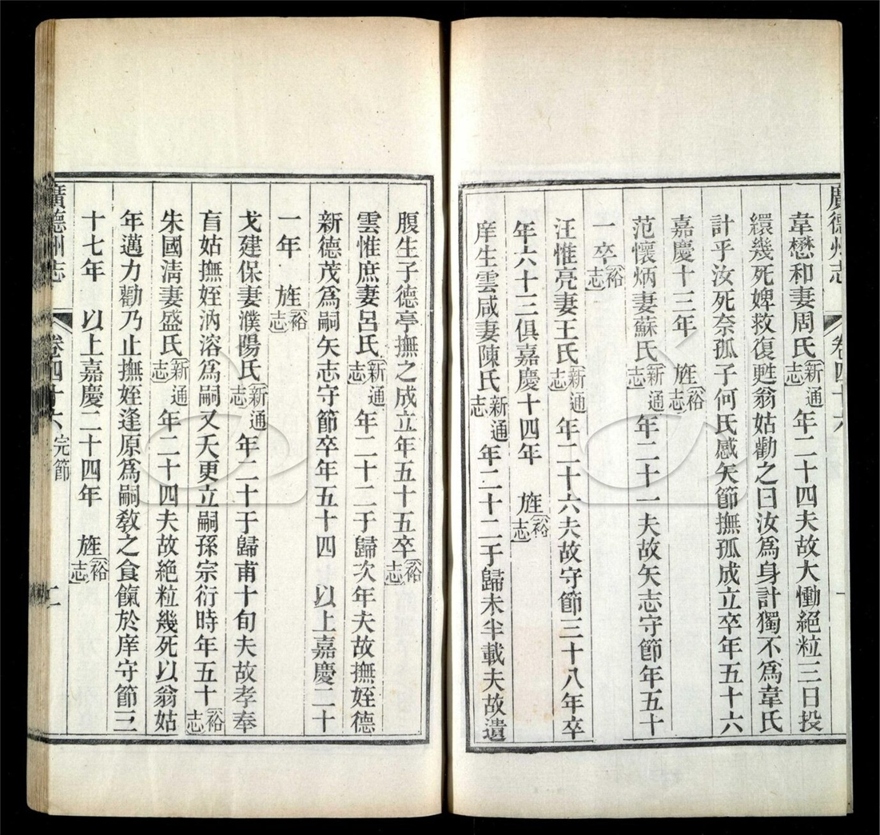 廣德州志 卷四十六
韋懋和妻周氏新通志年二十四夫故大慟絕粒三日投
繯幾死婢救復甦翁姑勸之曰汝爲身計獨不爲韋氏
計乎汝死奈孤子何氏感矢節撫孤成立卒年五十六
嘉慶十三年 旌裕志
范懷炳妻蘇氏新通志年二十一夫故矢志守節年五十
一卒裕志
汪惟亮妻王氏新通志年二十六夫故守節三十八年卒
年六十三俱嘉慶十四年 旌裕志
庠生雲咸妻陳氏新通志年二十二于歸未半載夫故遺
腹生子德亭撫之成立年五十五卒裕志
雲惟庶妻呂氏新通志年二十二于歸次年夫故撫姪德
新德茂爲嗣矢志守節卒年五十四 以上嘉慶二十
一年 旌裕志
戈建保妻濮陽氏新通志年二十于歸甫十旬夫故孝奉
盲姑撫姪汭溶爲嗣又夭更立嗣孫宗衍時年五十裕志
朱國淸妻盛氏新通志年二十四夫故絕粒幾死以翁姑
年邁力勸乃止撫姪逢原爲嗣敎之食餼於庠守節三
十七年 以上嘉慶二十四年 旌裕志
廣德州志 卷四十六 完節 二